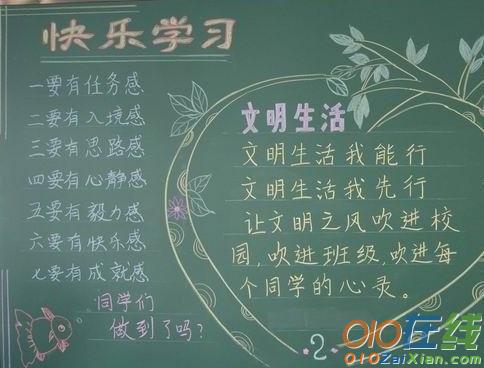 快乐学习
一要有任务感
二要有入境感
三要有思路感
四要有心静感
五要有毅力感
六要有快乐感
七要有成就感
同学们
做到了吗?
文明生活
文明生活我能行
文明生活我先行
让文明之风吹进校
园,吹进班级,吹进每
个同学的心灵。
2
010在线
010ZaiXian.com